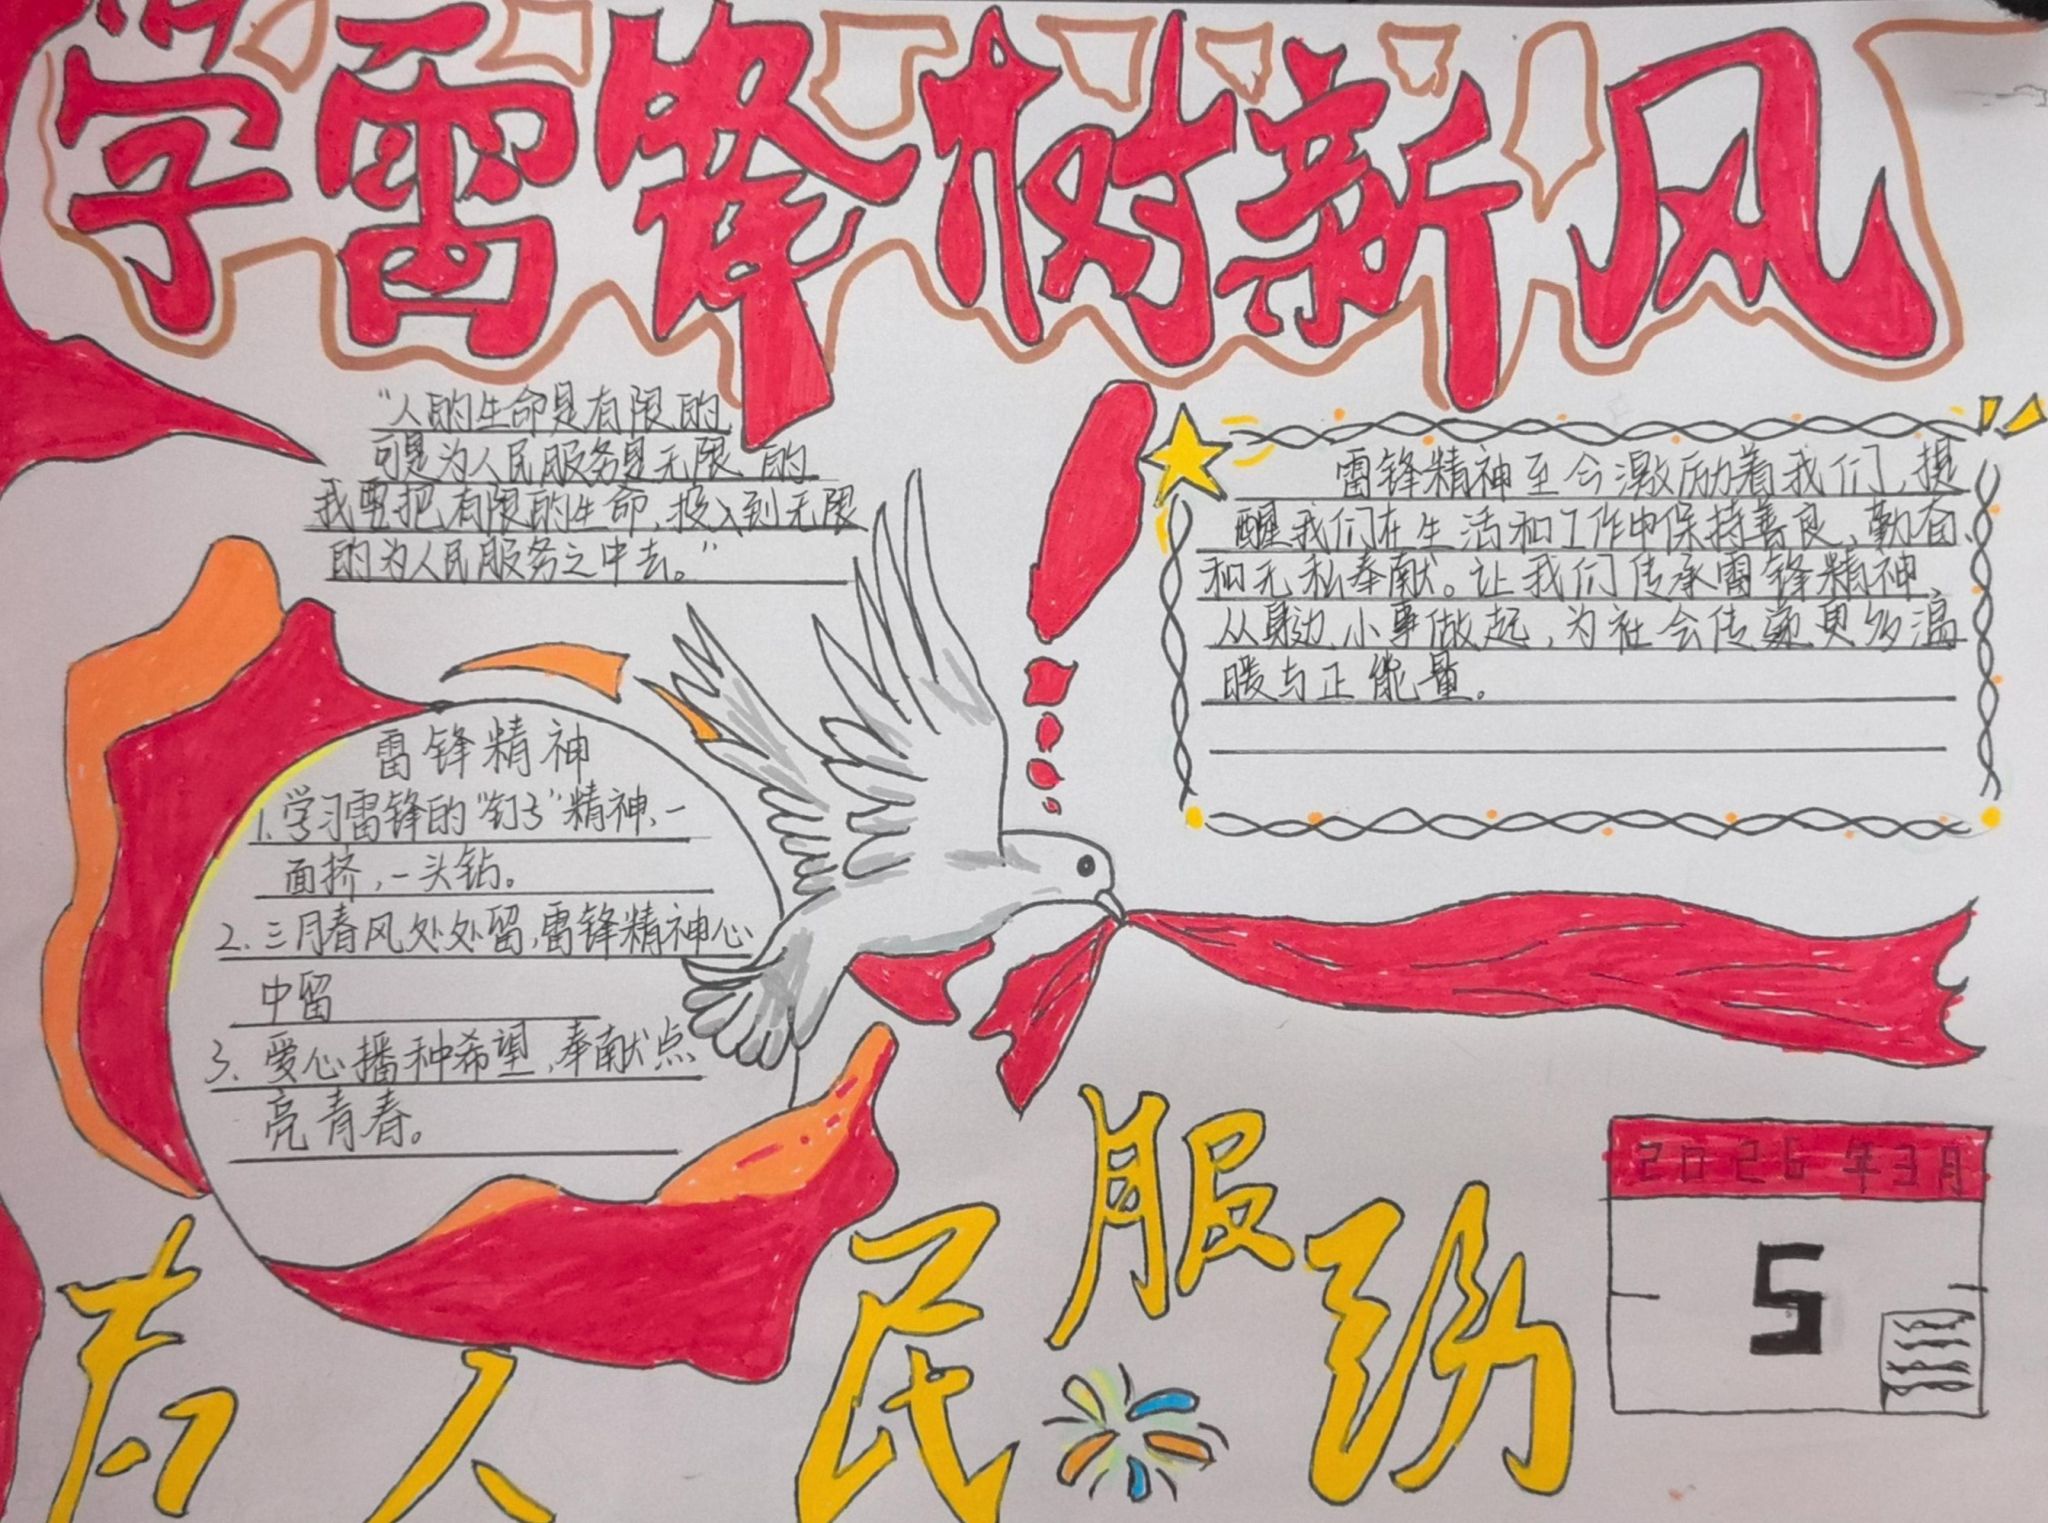 学雷锋树新风
“人的生命是有限的
可是为人民服务是无限的
我要把有限的生命，投入到无限
的为人民服务之中去。”
雷锋精神至今激励着我们，提
醒我们在生活和工作中保持善良、勤奋、
和无私奉献。让我们传承雷锋精神
从身边小事做起，为社会传递更多温
暖与正能量。
雷锋精神
1.学习雷锋的“钉子”精神、一
面挤，一头钻。
2.三月春风处处留，雷锋精神心
中留
3、爱心播种希望，奉献点
亮青春。
为人民服务
2026年3月
5